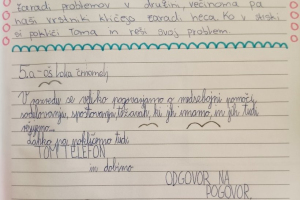 zaradi problemov v družini, večinoma pa
naši vrstniki kličejo zaradi heca. Ko v stiski
si pokliči Toma in reši svoj problem.
5.a - oš Loka Črnomelj
V razredu se veliko pogovarjamo o medsebojni pomoči,
sodelovanju, spoštovanju, težavah, ki jih imamo, in jih tudi
rešujemo.
Lahko pa pokličemo tudi
TOM TELEFON
in dobimo
ODGOVOR NA
POGOVOR.